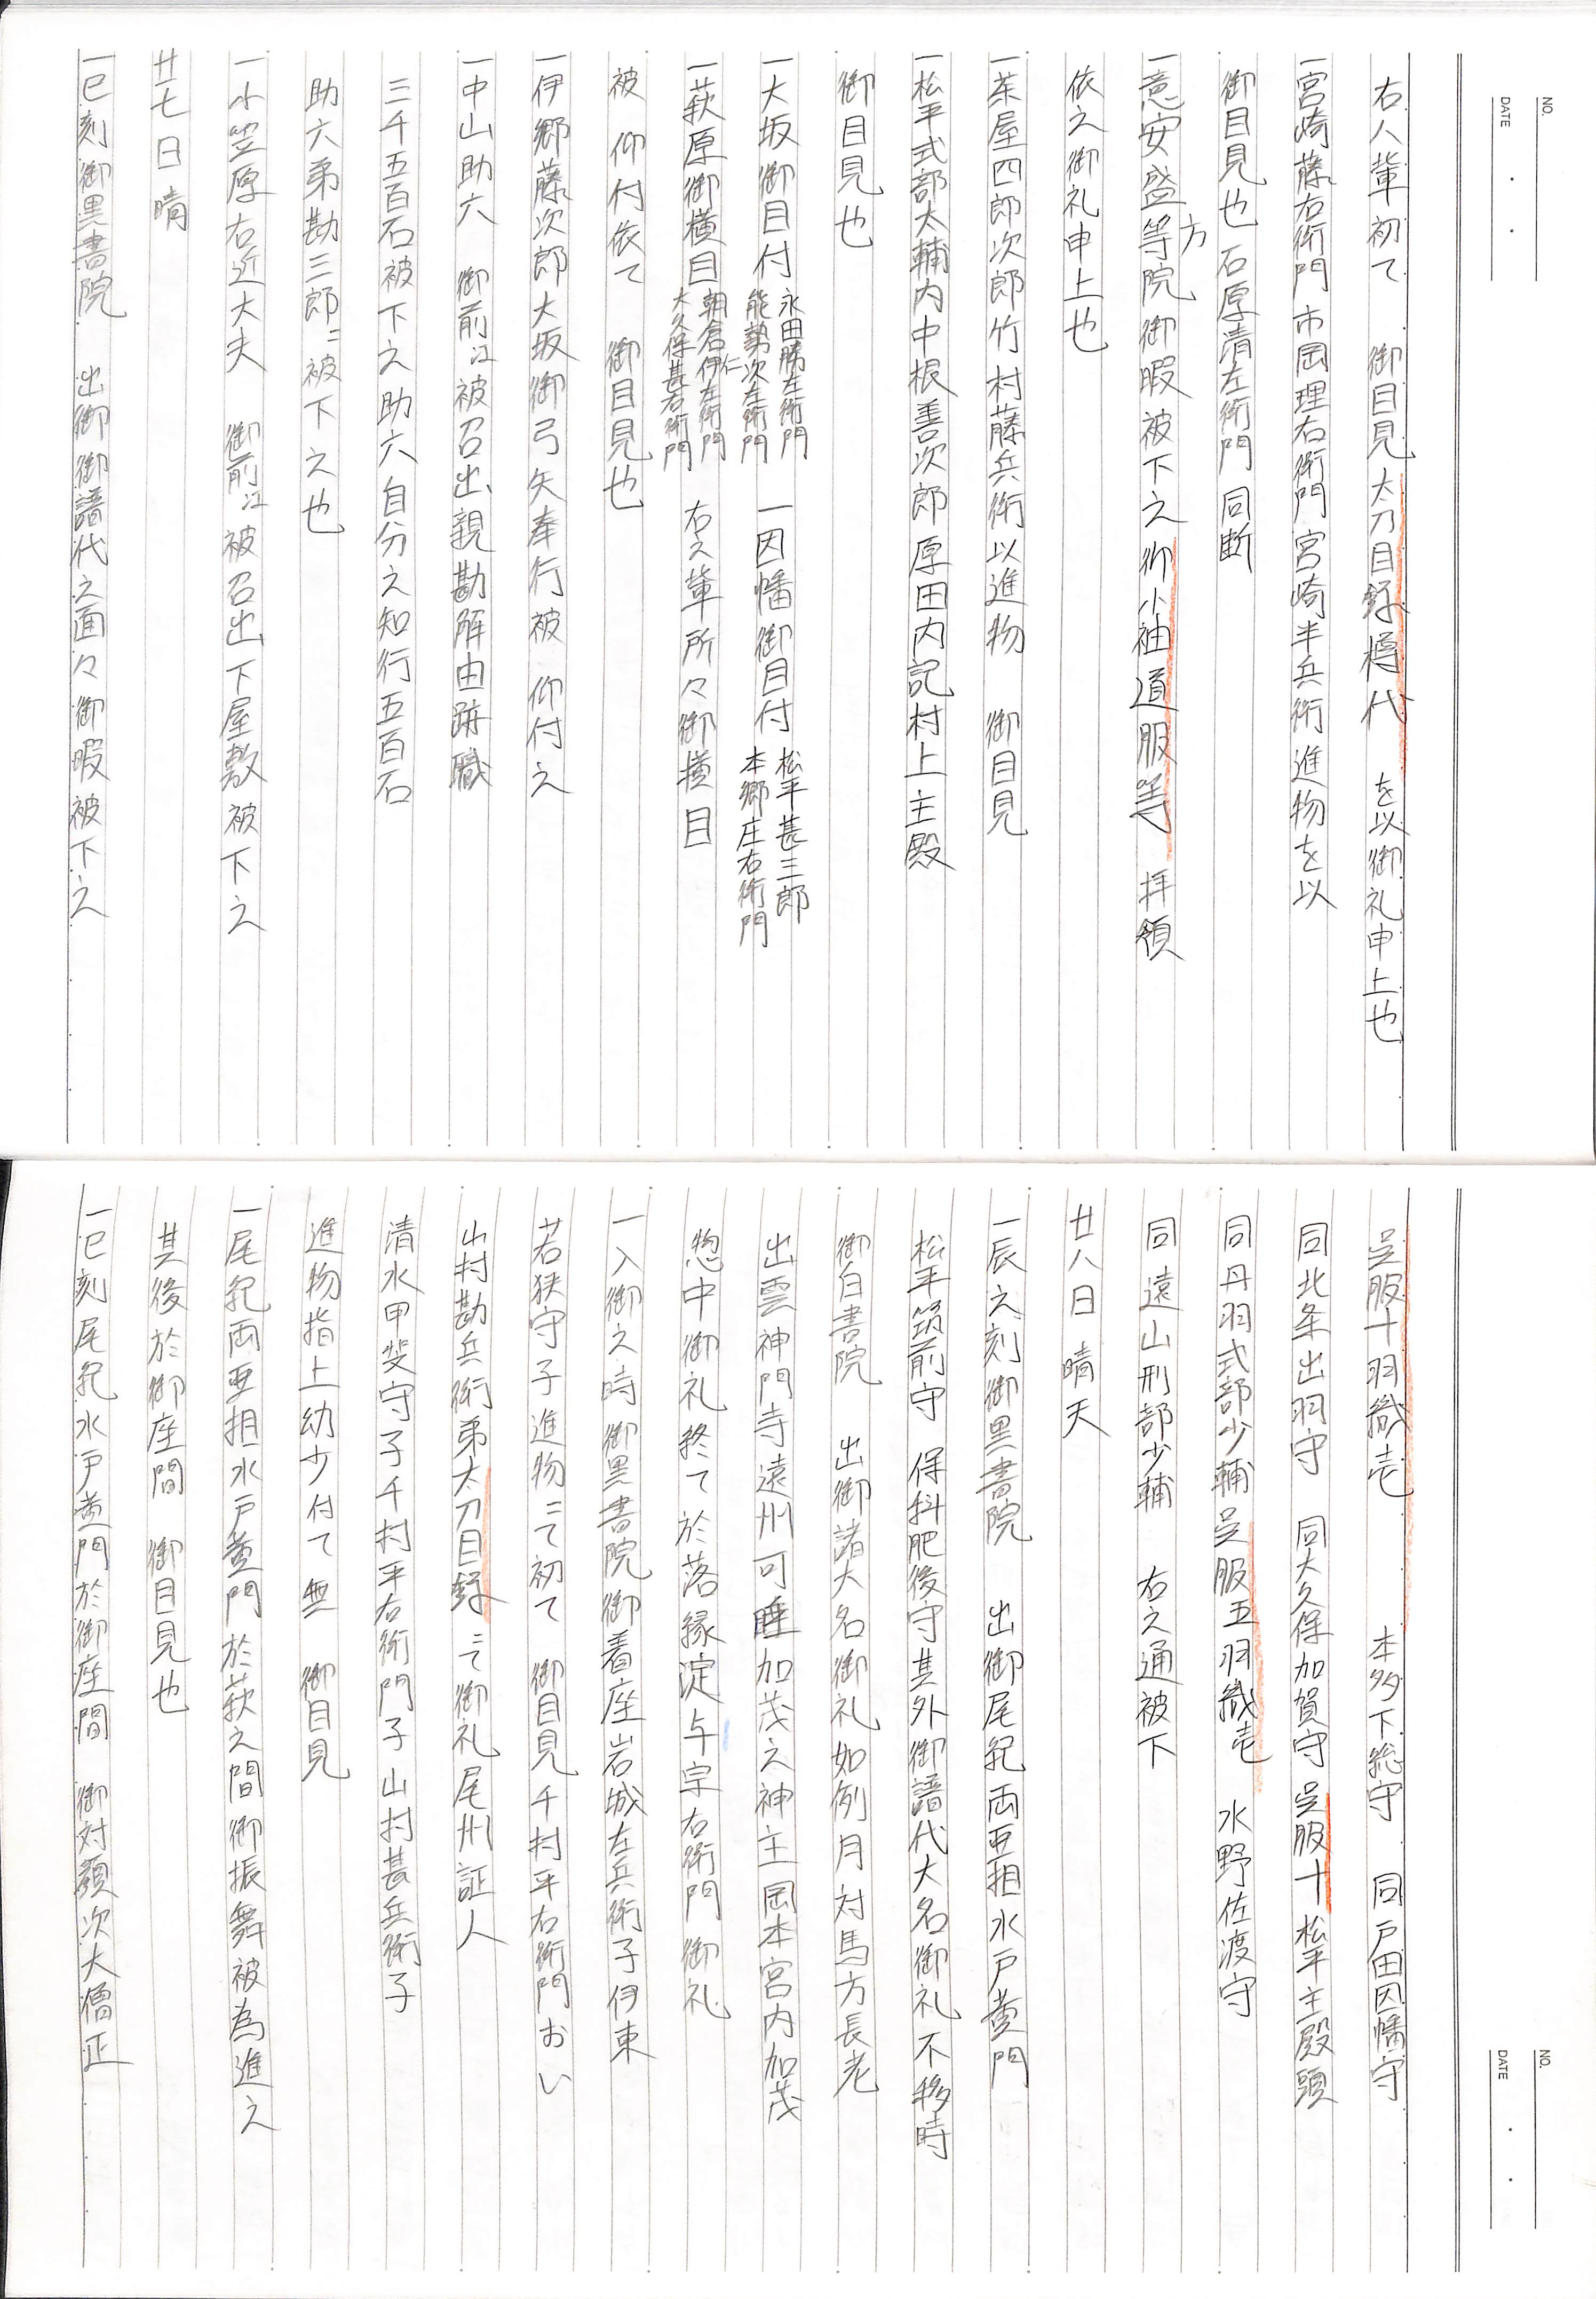 NO.
DATE ・ ・
右人輩初て 御目見太刀目録樽代 を以御礼申上也
一宮崎藤右衛門市岡理右衛門宮崎半兵衛進物を以
御目見也石原清左衛門同断
一意安盛方等院御暇被下之御小袖道服等 拝領
依之御礼申上也
一茶屋四郎次郎竹村藤兵衛以進物 御目見
一松平式部太輔内中根善次郎原田内記村上主殿
御目見也
一大坂御目付 永田勝左衛門 能勢次左衛門 一因幡御目付 松平甚三郎 本郷庄右衛門
一萩原御横目 朝倉仁左衛門 大久保甚右衛門 右之輩所々御横目
被 仰付依て 御目見也
一伊郷藤次郎大坂御弓矢奉行被 仰付之
一中山助六 御前江被召出親勘解由跡職
三千五百石被下之助六自分之知行五百石
助六弟勘三郎ニ被下之也
一小笠原右近大夫 御前江被召出下屋敷被下之
廿七日晴
一巳刻御黒書院 出御御譜代之面々御暇被下之
NO.
DATE ・ ・
呉服十羽織壱 本多下総守 同戸田因幡守
同北条出羽守 同大久保加賀守呉服十松平主殿頭
同丹羽式部少輔呉服五羽織壱 水野佐渡守
同遠山刑部少輔 右之通被下
廿八日晴天
一辰之刻御黒書院 出御尾紀両亜相水戸黄門
松平筑前守 保科肥後守其外御譜代大名御礼不移時
御白書院 出御諸大名御礼如例月対馬方長老
出雲神門寺遠州可睡加茂之神主岡本宮内加茂
惣中御礼終て於落縁淀与宗右衛門御礼
一入御之時御黒書院御着座岩城左兵衛子伊東
若狭守子進物ニて初て 御目見千村平右衛門おい
山村勘兵衛弟太刀目録ニて御礼尾州証人
清水甲斐守子千村平右衛門子山村甚兵衛子
進物指上幼少付て無 御目見
一尾紀両亜相水戸黄門於萩之間御振舞被為進之
其後於御座間 御目見也
一巳刻尾紀水戸黄門於御座間 御対顔次大僧正